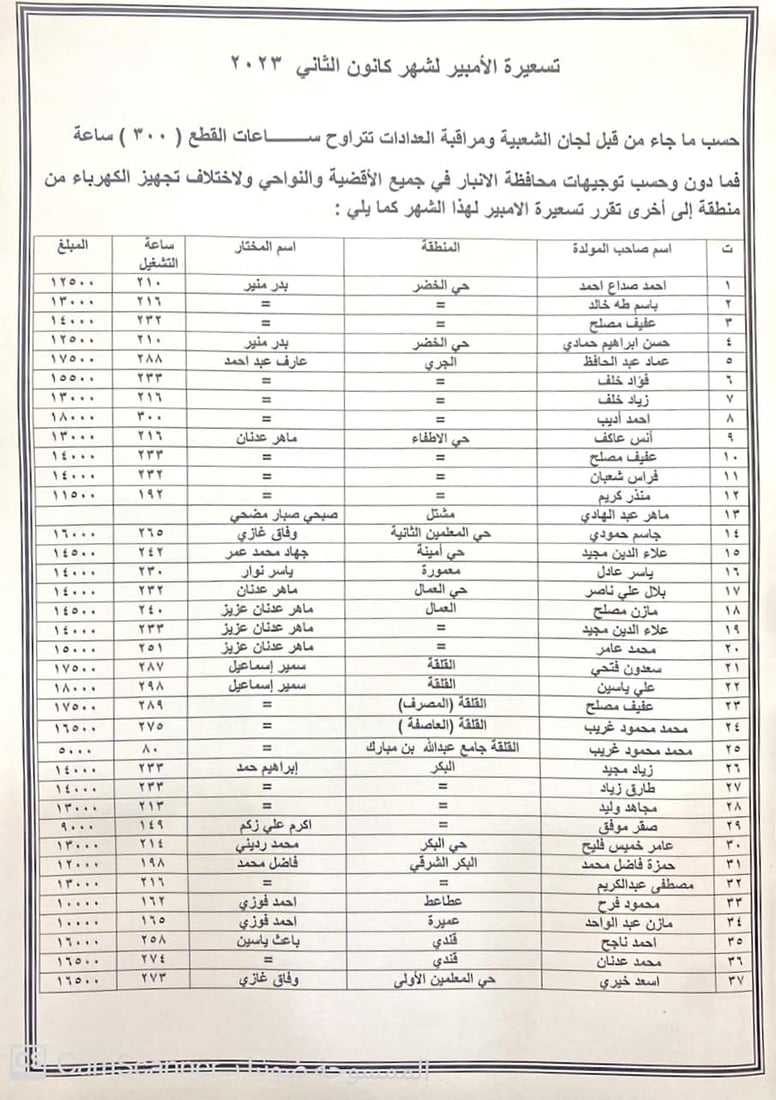 تسعيرة الأمبير لشهر كانون الثاني ٢٠٢٣
حسب ما جاء من قبل لجان الشعبية ومراقبة العدادات تتراوح ســـــاعات القطع ( ٣٠٠ ) ساعة
فما دون وحسب توجيهات محافظة الانبار في جميع الأقضية والنواحي ولاختلاف تجهيز الكهرباء من
منطقة إلى أخرى تقرر تسعيرة الامبير لهذا الشهر كما يلي :
ت اسم صاحب المولدة المنطقة اسم المختار ساعة التشغيل المبلغ
١ احمد صداع احمد حي الخضر بدر منير ٢١٠ ١٢٥٠٠
٢ باسم طه خالد = = ٢١٦ ١٣٠٠٠
٣ عفيف مصلح = = ٢٣٢ ١٤٠٠٠
٤ حسن ابراهيم حمادي حي الخضر بدر منير ٢١٠ ١٢٥٠٠
٥ عماد عبد الحافظ الجري عارف عبد احمد ٢٨٨ ١٧٥٠٠
٦ فؤاد خلف = = ٢٣٣ ١٥٥٠٠
٧ زياد خلف = = ٢١٦ ١٣٠٠٠
٨ احمد أديب = = ٣٠٠ ١٨٠٠٠
٩ أنس عاكف حي الاطفاء ماهر عدنان ٢١٦ ١٣٠٠٠
١٠ عفيف مصلح = = ٢٣٣ ١٤٠٠٠
١١ فراس شعبان = = ٢٣٢ ١٤٠٠٠
١٢ منذر كريم = = ١٩٢ ١١٥٠٠
١٣ ماهر عبد الهادي مشتل صبحي صبار مضحي
١٤ جاسم حمودي حي المعلمين الثانية وفاق غازي ٢٦٥ ١٦٠٠٠
١٥ علاء الدين مجيد حي أمينة جهاد محمد عمر ٢٤٢ ١٤٥٠٠
١٦ ياسر عادل معمورة ياسر نوار ٢٣٠ ١٤٠٠٠
١٧ بلال علي ناصر حي العمال ماهر عدنان ٢٣٢ ١٤٠٠٠
١٨ مازن مصلح العمال ماهر عدنان عزيز ٢٤٠ ١٤٥٠٠
١٩ علاء الدين مجيد = ماهر عدنان عزيز ٢٣٣ ١٤٠٠٠
٢٠ محمد عامر = ماهر عدنان عزيز ٢٥١ ١٥٠٠٠
٢١ سعدون فتحي القلقة سمير إسماعيل ٢٨٧ ١٧٥٠٠
٢٢ علي ياسين القلقة سمير إسماعيل ٢٩٨ ١٨٠٠٠
٢٣ عفيف مصلح القلقة (المصرف) = ٢٨٩ ١٧٥٠٠
٢٤ محمد محمود غريب القلقة (العاصفة ) = ٢٧٥ ١٦٥٠٠
٢٥ محمد محمود غريب القلقة جامع عبدالله بن مبارك = ٨٠ ٥٠٠٠
٢٦ زياد مجيد البكر إبراهيم حمد ٢٣٣ ١٤٠٠٠
٢٧ طارق زياد = = ٢٣٣ ١٤٠٠٠
٢٨ مجاهد وليد = = ٢١٣ ١٣٠٠٠
٢٩ صقر موفق = اكرم علي زكم ١٤٩ ٩٠٠٠
٣٠ عامر خميس فليح حي البكر محمد رديني ٢١٤ ١٣٠٠٠
٣١ حمزة فاضل محمد البكر الشرقي فاضل محمد ١٩٨ ١٢٠٠٠
٣٢ مصطفى عبدالكريم = = ٢١٦ ١٣٠٠٠
٣٣ محمود فرح عطاعط احمد فوزي ١٦٢ ١٠٠٠٠
٣٤ مازن عبد الواحد عميرة احمد فوزي ١٦٥ ١٠٠٠٠
٣٥ احمد ناجح قندي باعث ياسين ٢٥٨ ١٦٠٠٠
٣٦ محمد عدنان قندي = ٢٧٤ ١٦٥٠٠
٣٧ اسعد خيري حي المعلمين الأولى وفاق غازي ٢٧٣ ١٦٥٠٠
CS الممسوحة ضوئيا بـ CamScanner